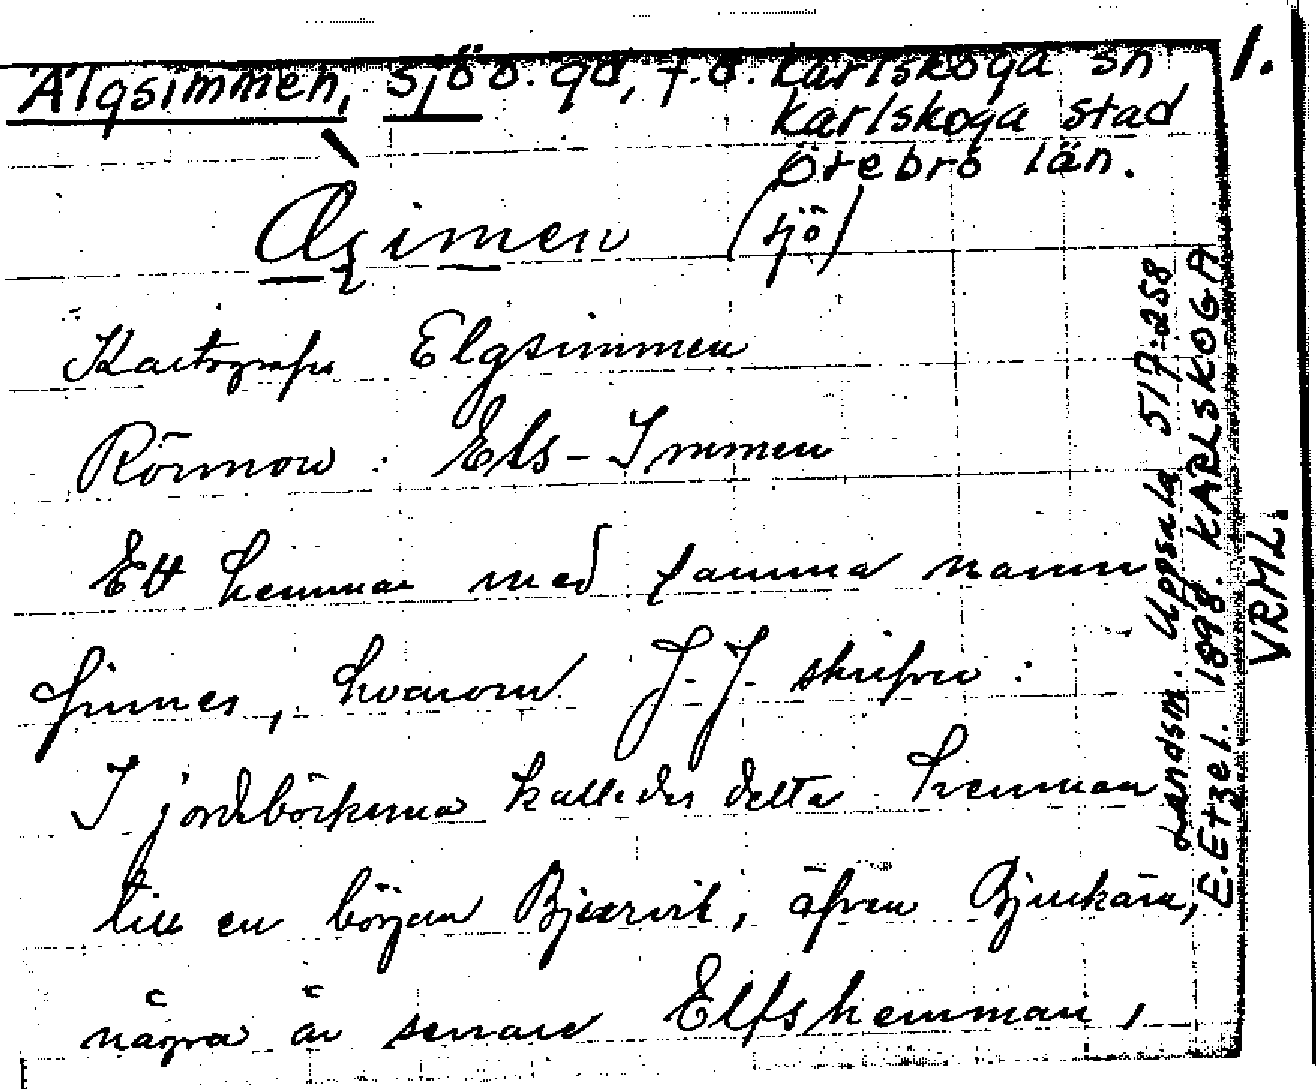 Älgsimmen, sjö o. gd, f.d. Karlskoga sn
Karlskoga stad
Örebro län.
1.
(sjö)
Kartografi Elgsimmen
Rörmon: Els-Immen
Ett hemman med samma namn
finnes, hvarom J. J. skrifver:
I jordeböckerna kallades detta hemman
till en början Bjurvik, äfven Bjurkärn,
några år senare Elfshemman,
Landsm. Uppsala 517:258
E. Etzel. 1898. KARLSKOGA
VRML.